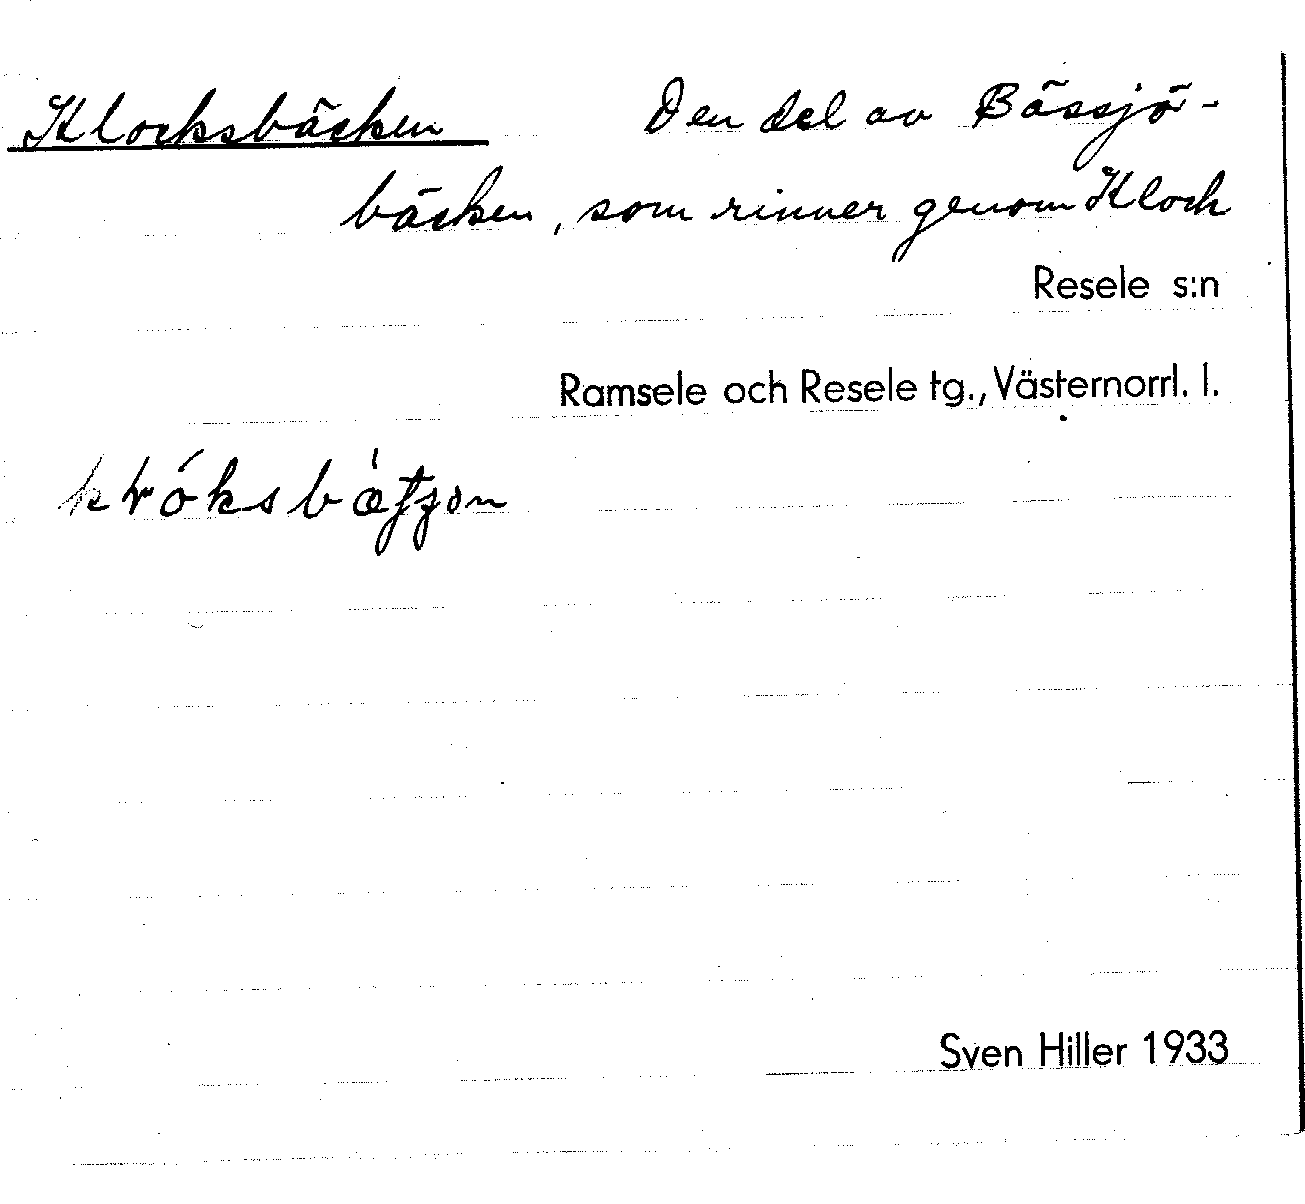 Klocksbäcken Den del av Bässjö-
bäcken, som rinner genom Klock
Resele s:n
Ramsele och Resele tg., Västernorrl. l.
Sven Hiller 1933